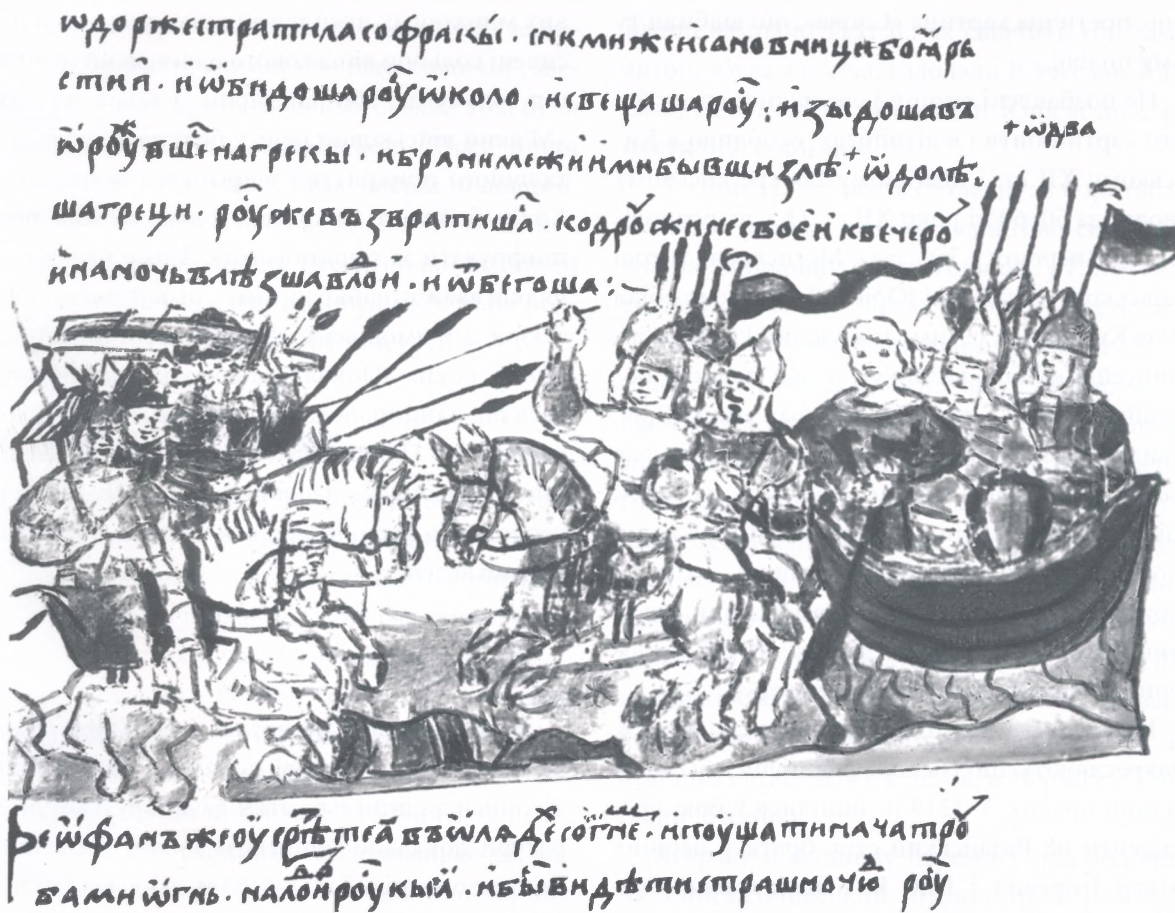 ѡдоржестратиласофракы · снимижеисановницибоѩрь
стии · иѡбидошароуⷭ҇ ѡколо · исвещашароуⷭ҇ · изыдошавъ
ѡроуⷤвшеⷭ҇ нагрекы · ибранимежиимибывшизлѣ + ѿдолѣ ·
+ ѡдва
шагреци · роуⷭ҇жевъзвратишаⷭ҇ · кодроужинесвоеиквечероу
инаночьвлѣзшавлоⷣи · иѿбегоша :~
Феѡфанъжеоусрѣтеѧвъѡлѧдеⷯсоѡгнеⷨ · ипоущатиначатроу
бамиѡгнь · налоⷣироукыѧ · ибыⷭ҇видѣтистрашночюⷣ роуⷭ҇